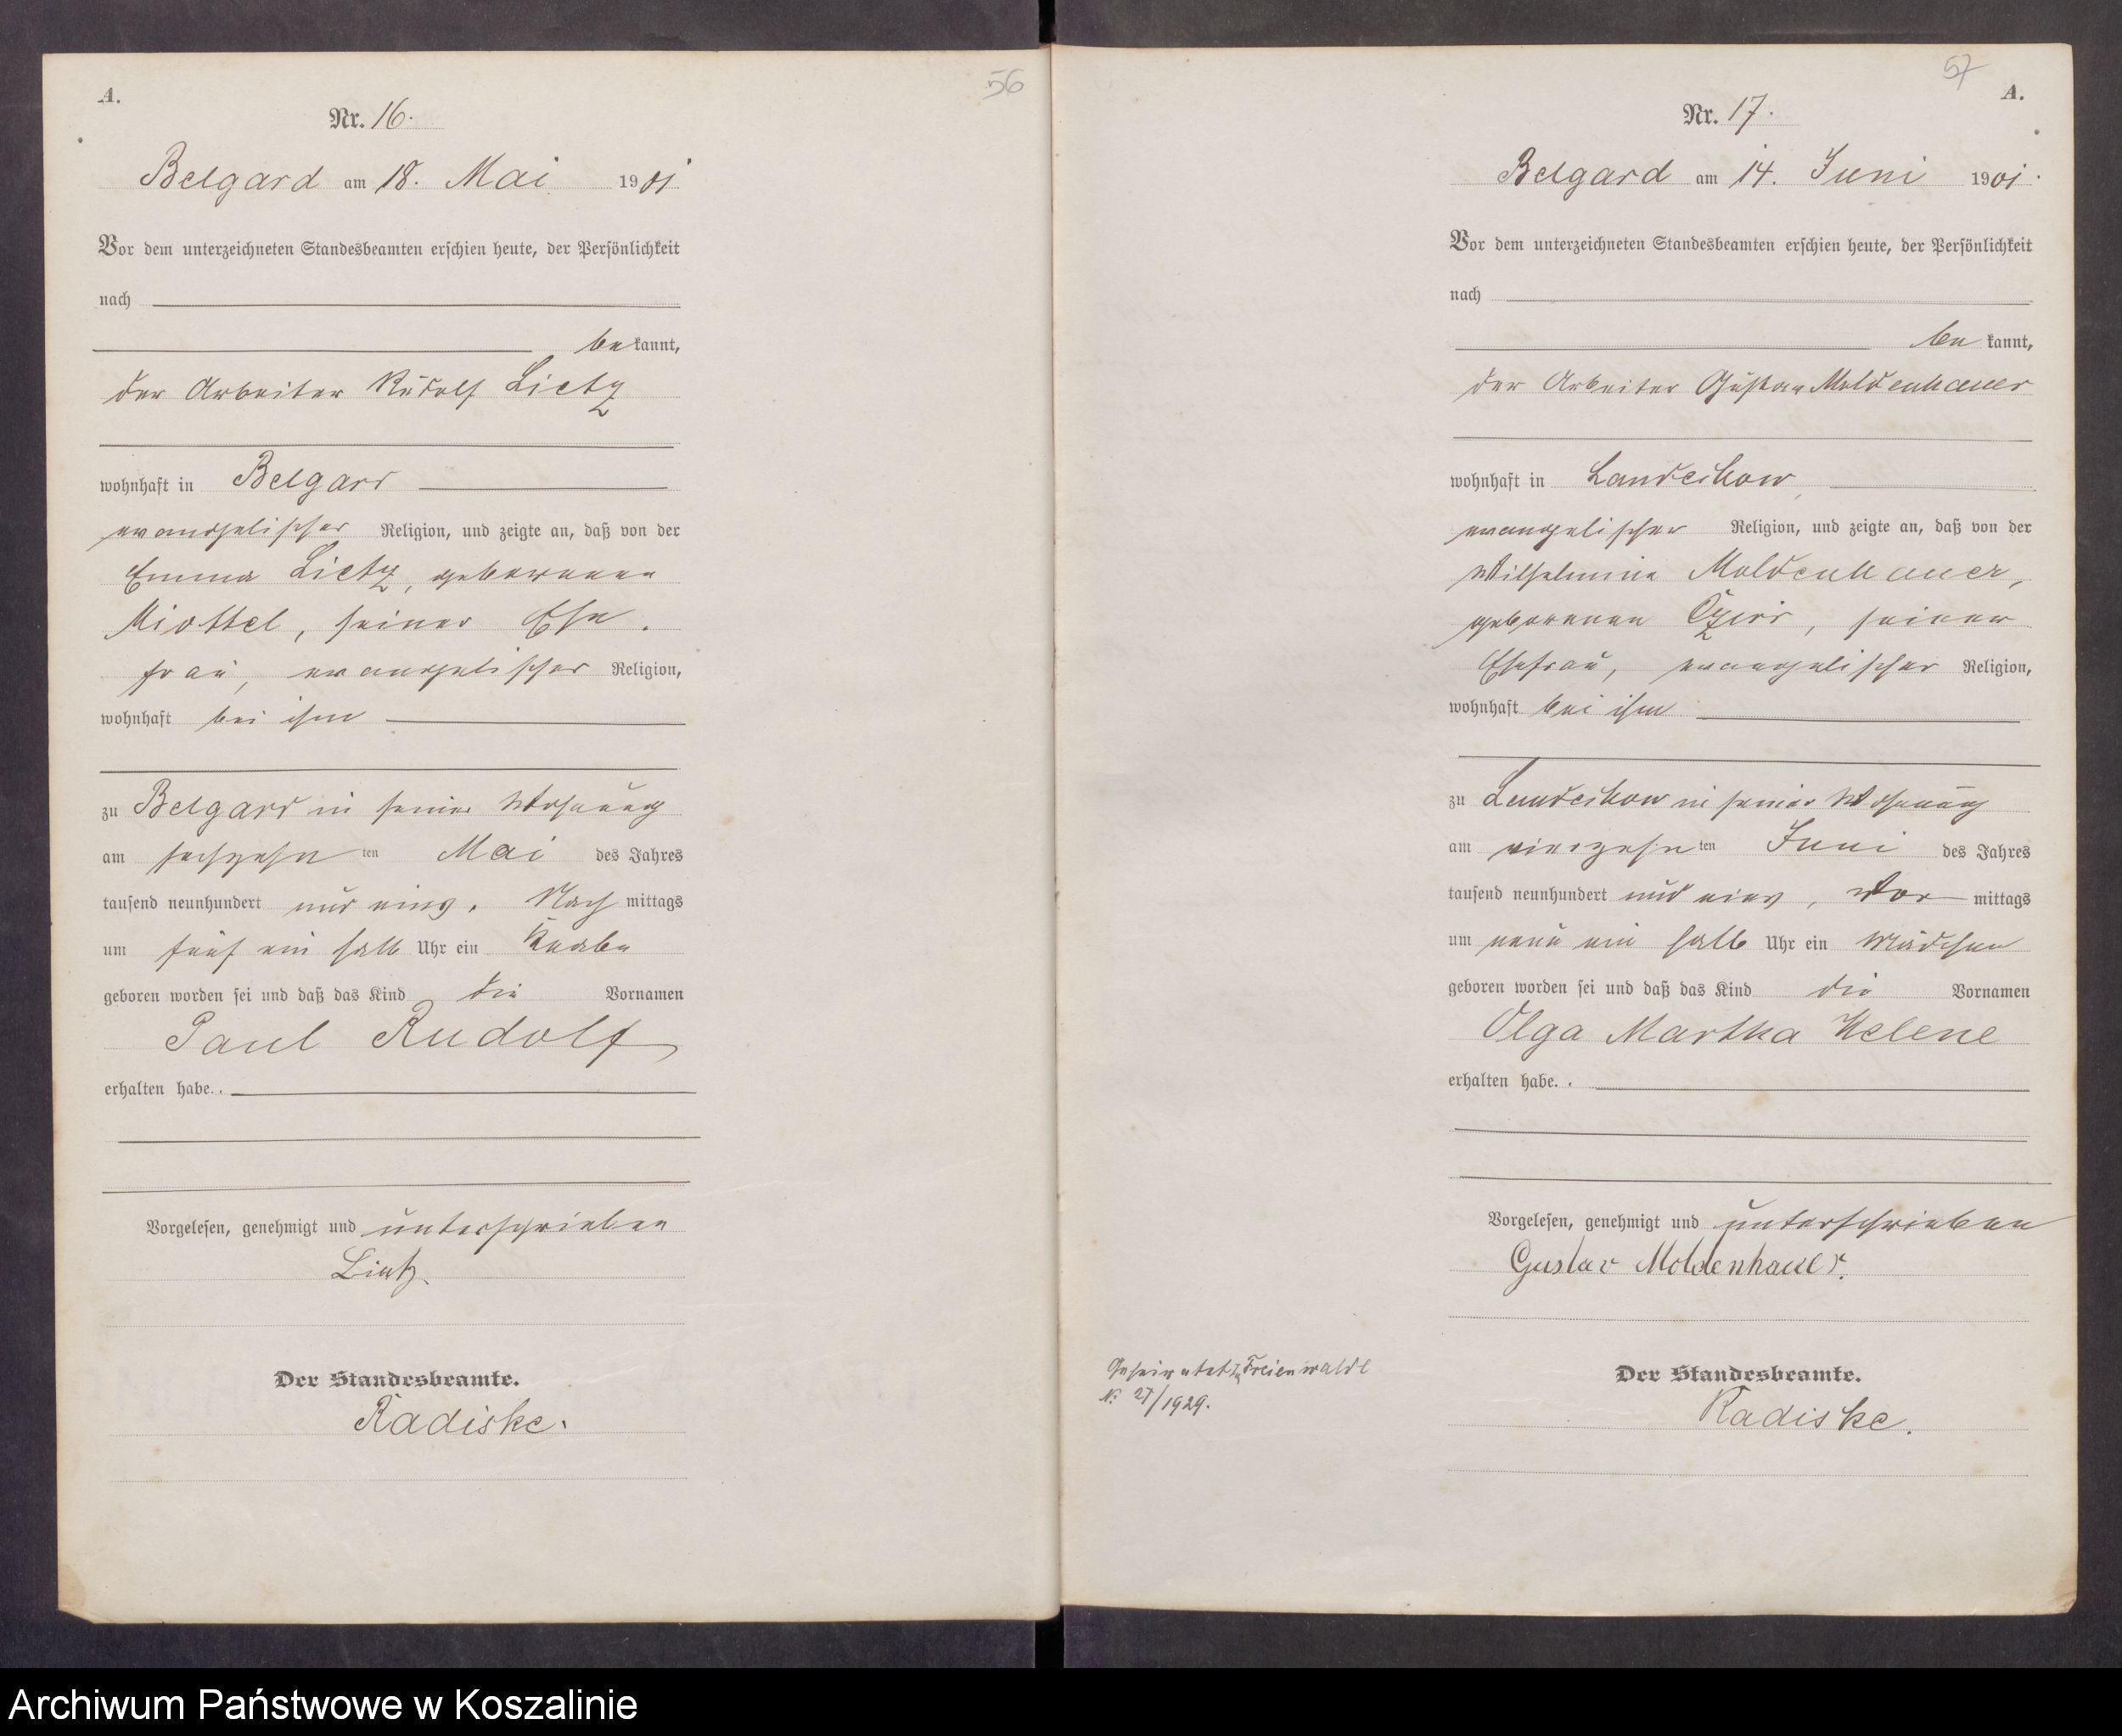 A.
56
Nr. 16.
Belgard am 18. Mai 1901
Vor dem unterzeichneten Standesbeamten erschien heute, der Persönlichkeit
nach
be kannt,
der Arbeiter Rudolf Lietz
wohnhaft in Belgard
evangelischer Religion, und zeigte an, daß von der
Emma Lietz, geborenen
Miottel, seiner Ehe-
frau, evangelischer Religion,
wohnhaft bei ihm
zu Belgard in seiner Wohnung
am sechzehn ten Mai des Jahres
tausend neunhundert und eins, Nach mittags
um fünf ein halb Uhr ein Knabe
geboren worden sei und daß das Kind die Vornamen
Paul Rudolf
erhalten habe.
Vorgelesen, genehmigt und unterschrieben
Lietz.
Der Standesbeamte.
Radiske.
57
A.
Nr. 17.
Belgard am 14. Juni 1901.
Vor dem unterzeichneten Standesbeamten erschien heute, der Persönlichkeit
nach
be kannt,
der Arbeiter Gustav Moldenhauer
wohnhaft in Landechow,
evangelischer Religion, und zeigte an, daß von der
Wilhelmine Moldenhauer,
geborenen seiner
Ehefrau, evangelischer Religion,
wohnhaft bei ihm
zu Landechow in seiner Wohnung
am vierzehn ten Juni des Jahres
tausend neunhundert und eins, Vor mittags
um neun ein halb Uhr ein Mädchen
geboren worden sei und daß das Kind die Vornamen
Olga Martha Helene
erhalten habe.
Vorgelesen, genehmigt und unterschrieben
Gustav Moldenhauer.
Geheiratet in Freienwalde
N: 27/1929.
Der Standesbeamte.
Radiske.
Archiwum Państwowe w Koszalinie